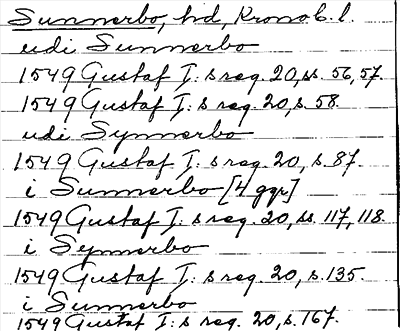 Sunnerbo, hd, Kronob. l.
udi Sunnerbo
1549 Gustaf I:s reg. 20, ss. 56, 57.
1549 Gustaf I:s reg. 20, s. 58.
udi Synnerbo
1549 Gustaf I:s reg. 20, s. 87.
i Sunnerbo [4 ggr]
1549 Gustaf I:s reg. 20, ss. 117, 118.
i Synnerbo
1549 Gustaf I:s reg. 20, s. 135.
i Sunnerbo
1549 Gustaf I:s reg. 20, s. 167.